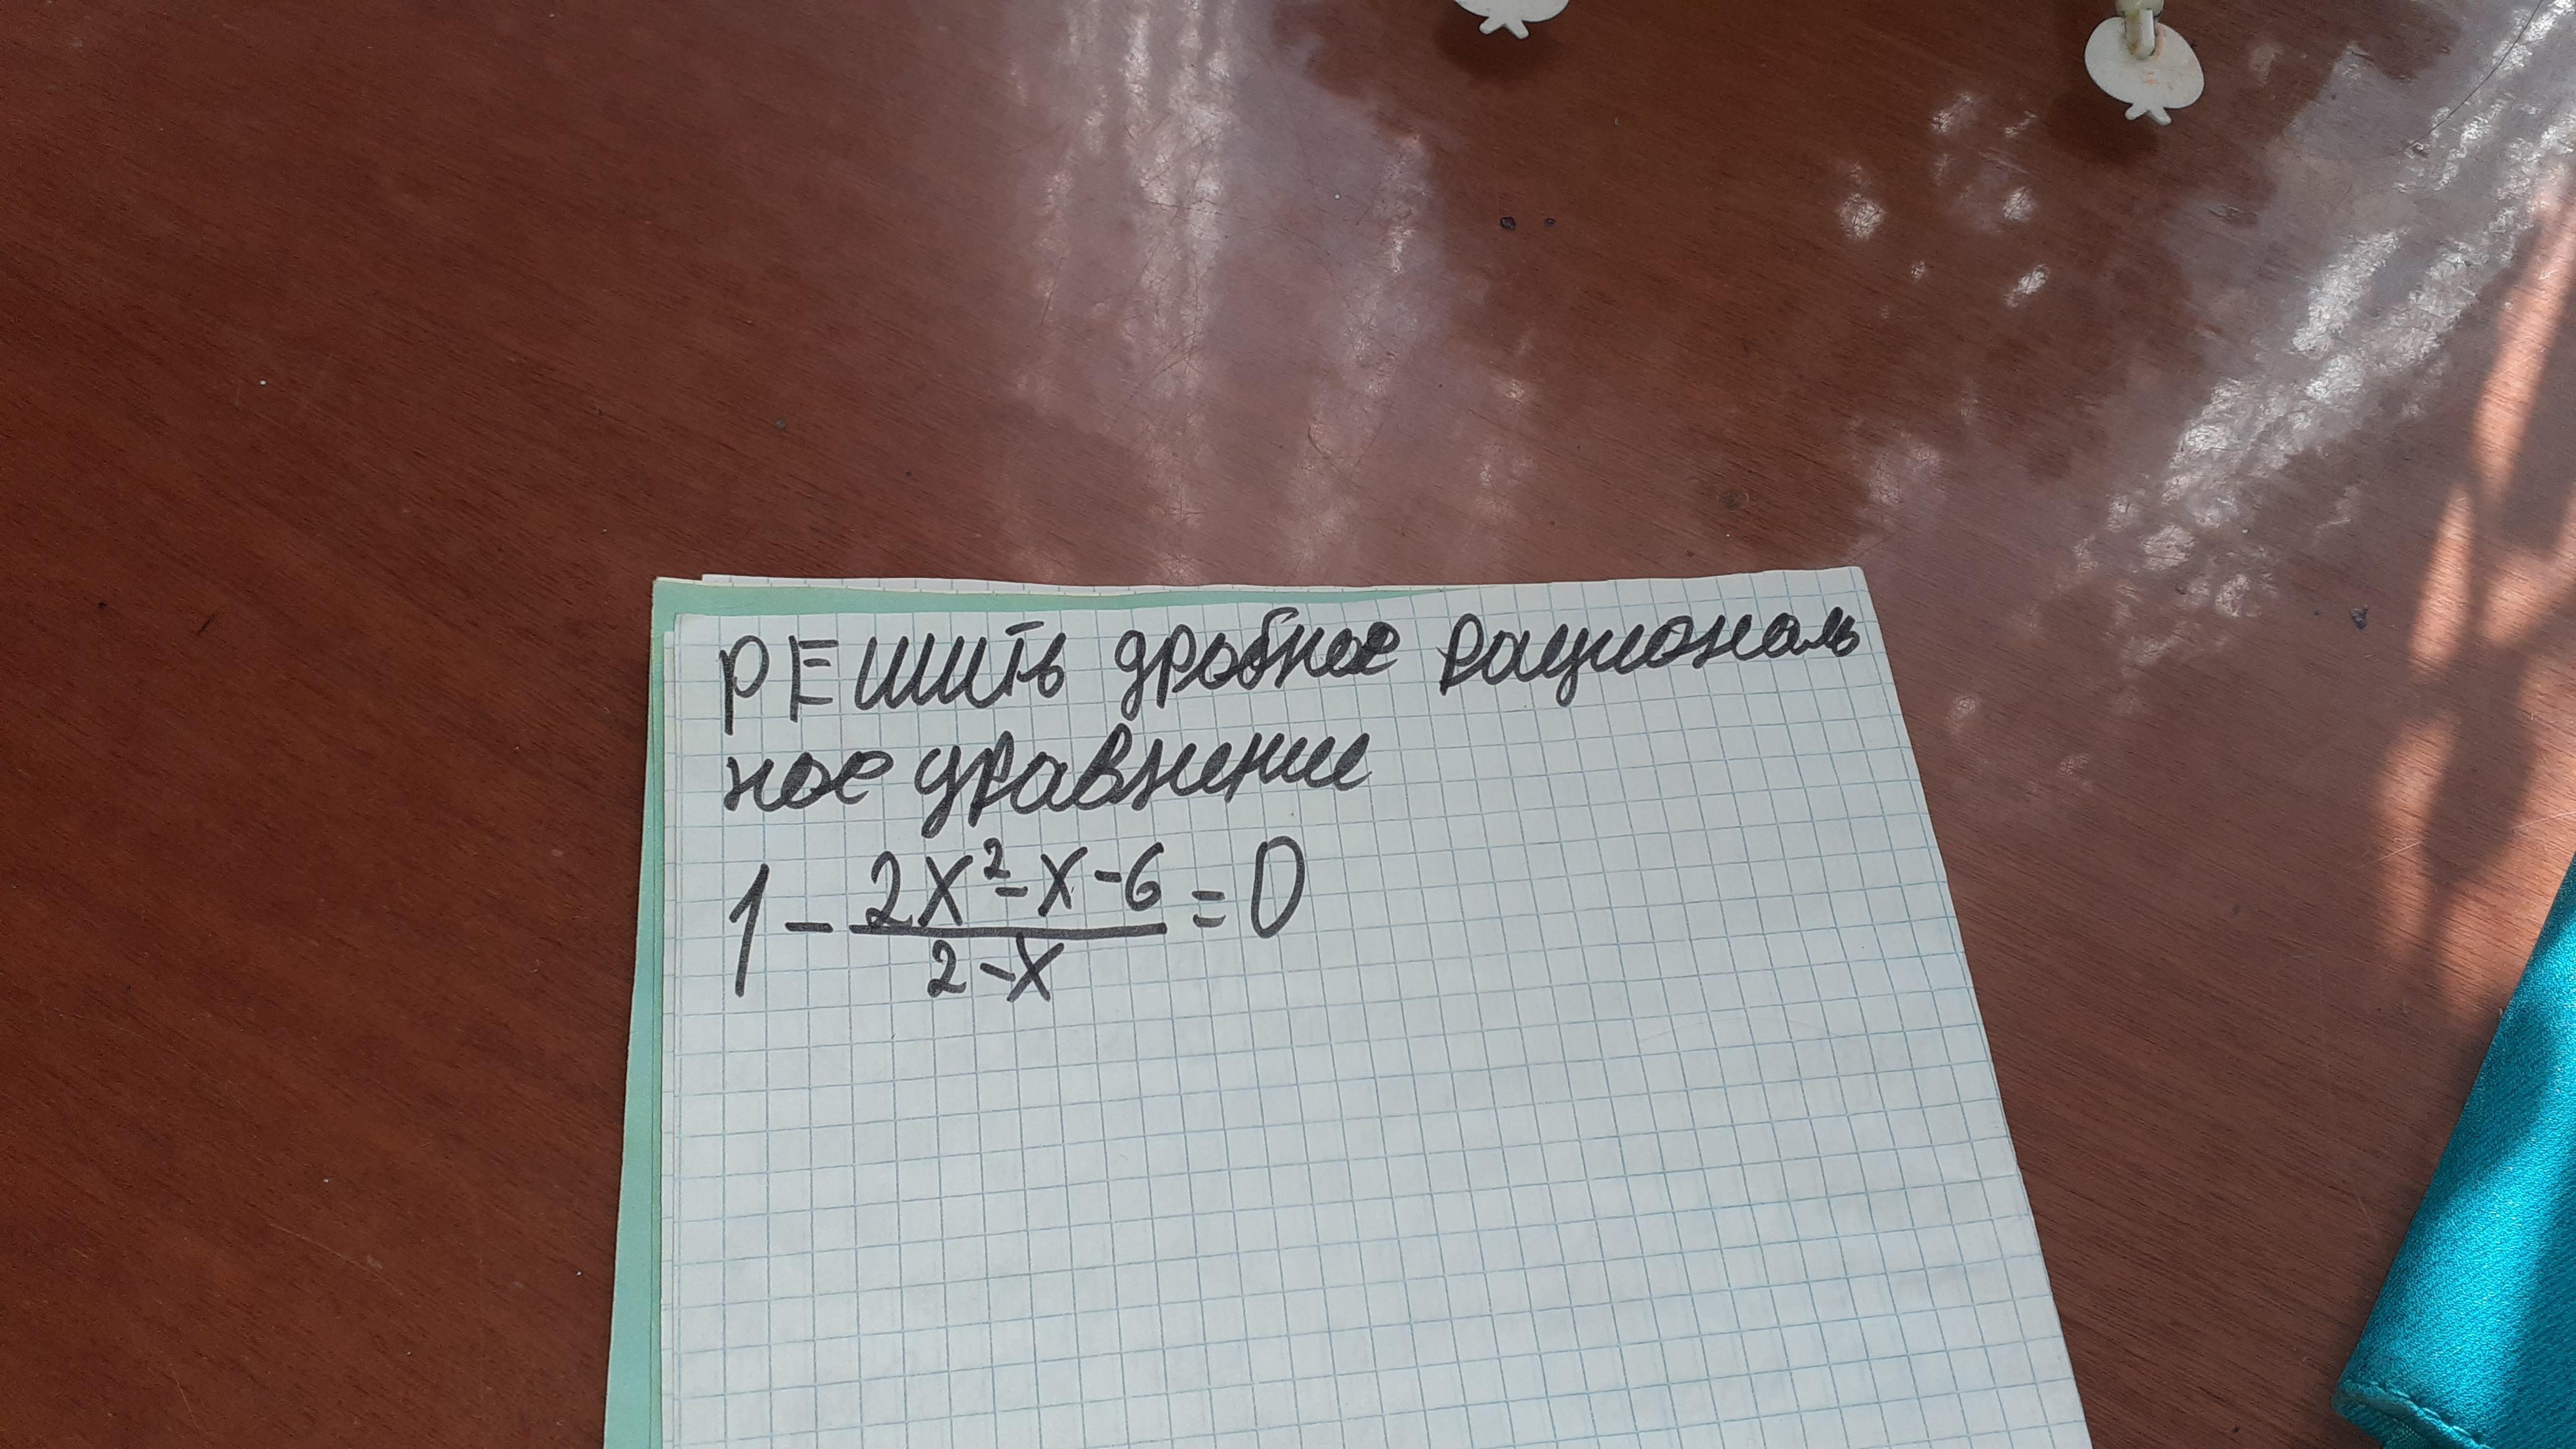 РЕШИТЬ дробное рациональ
ное уравнение
1 - \frac{2x^2-x-6}{2-x} = 0